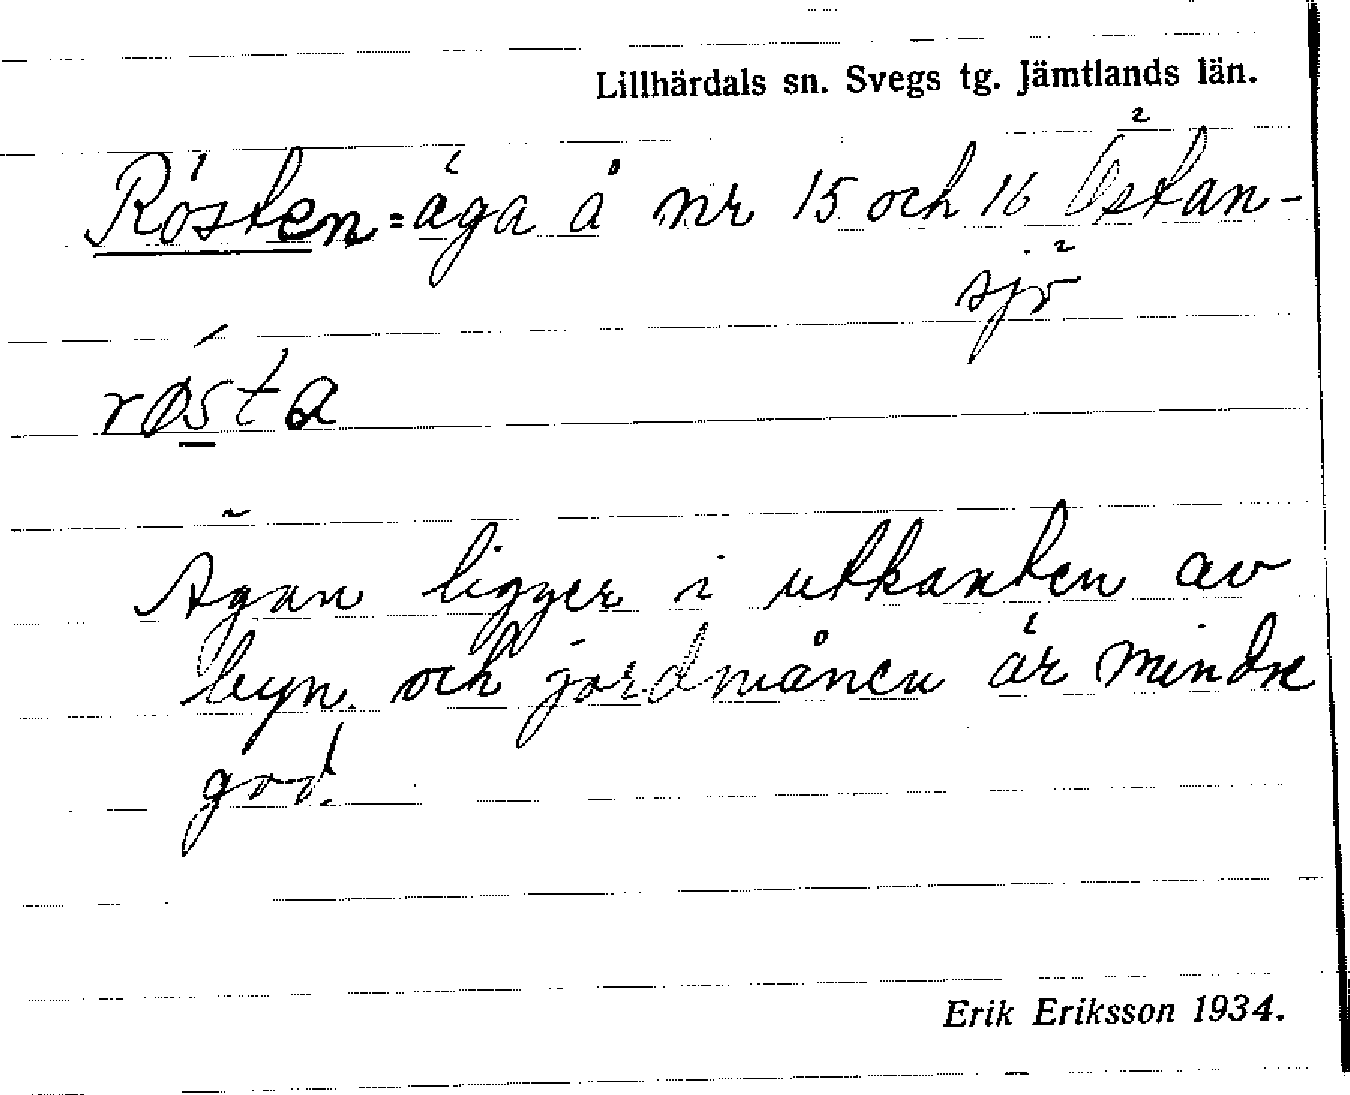 Lillhärdals sn. Svegs tg. Jämtlands län.
Rösten = äga å nr 15 och 16 Östan-
sjö
røsta
Ägan ligger i utkanten av
byn och jordmånen är mindre
god.
Erik Eriksson 1934.